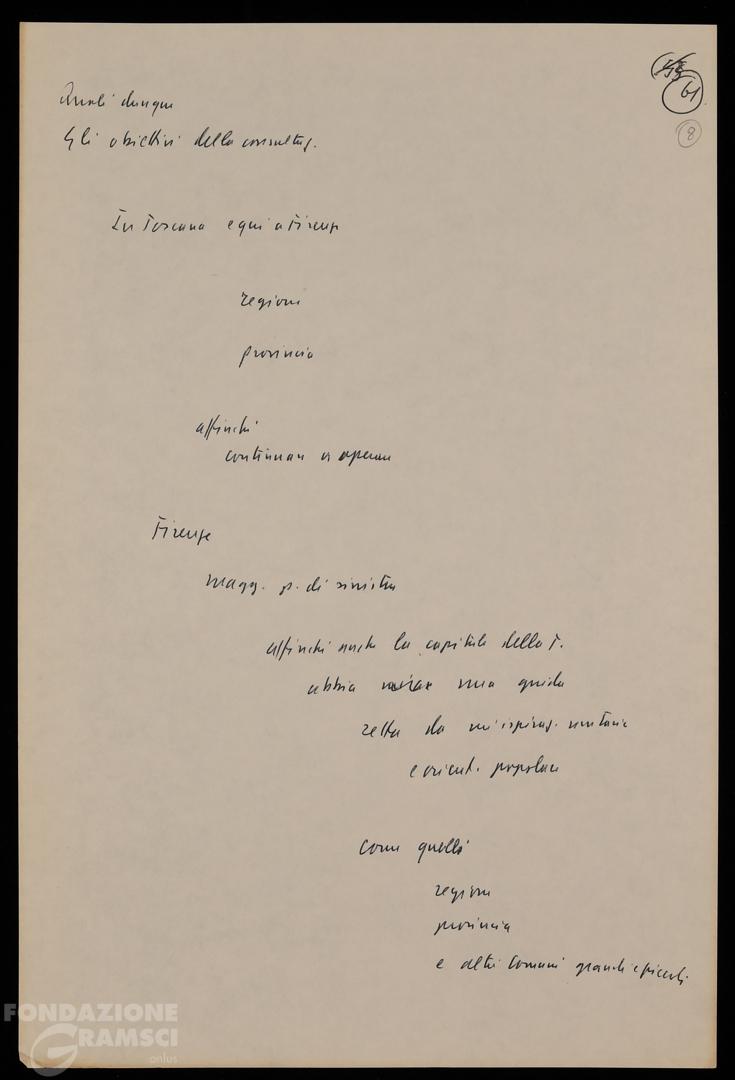 61
8
Quali dunque
Gli obiettivi della consultaz.
In Toscana e qui a Firenze
regione
provincia
affinché
continuare a operare
Firenze
magg. p. di sinistra
affinché anche la capitale della T.
abbia una guida
retta da un'ispiraz. unitaria
e orient. popolare
come quelli
regione
provincia
e altri Comuni grandi e piccoli
FONDAZIONE
GRAMSCI
onlus